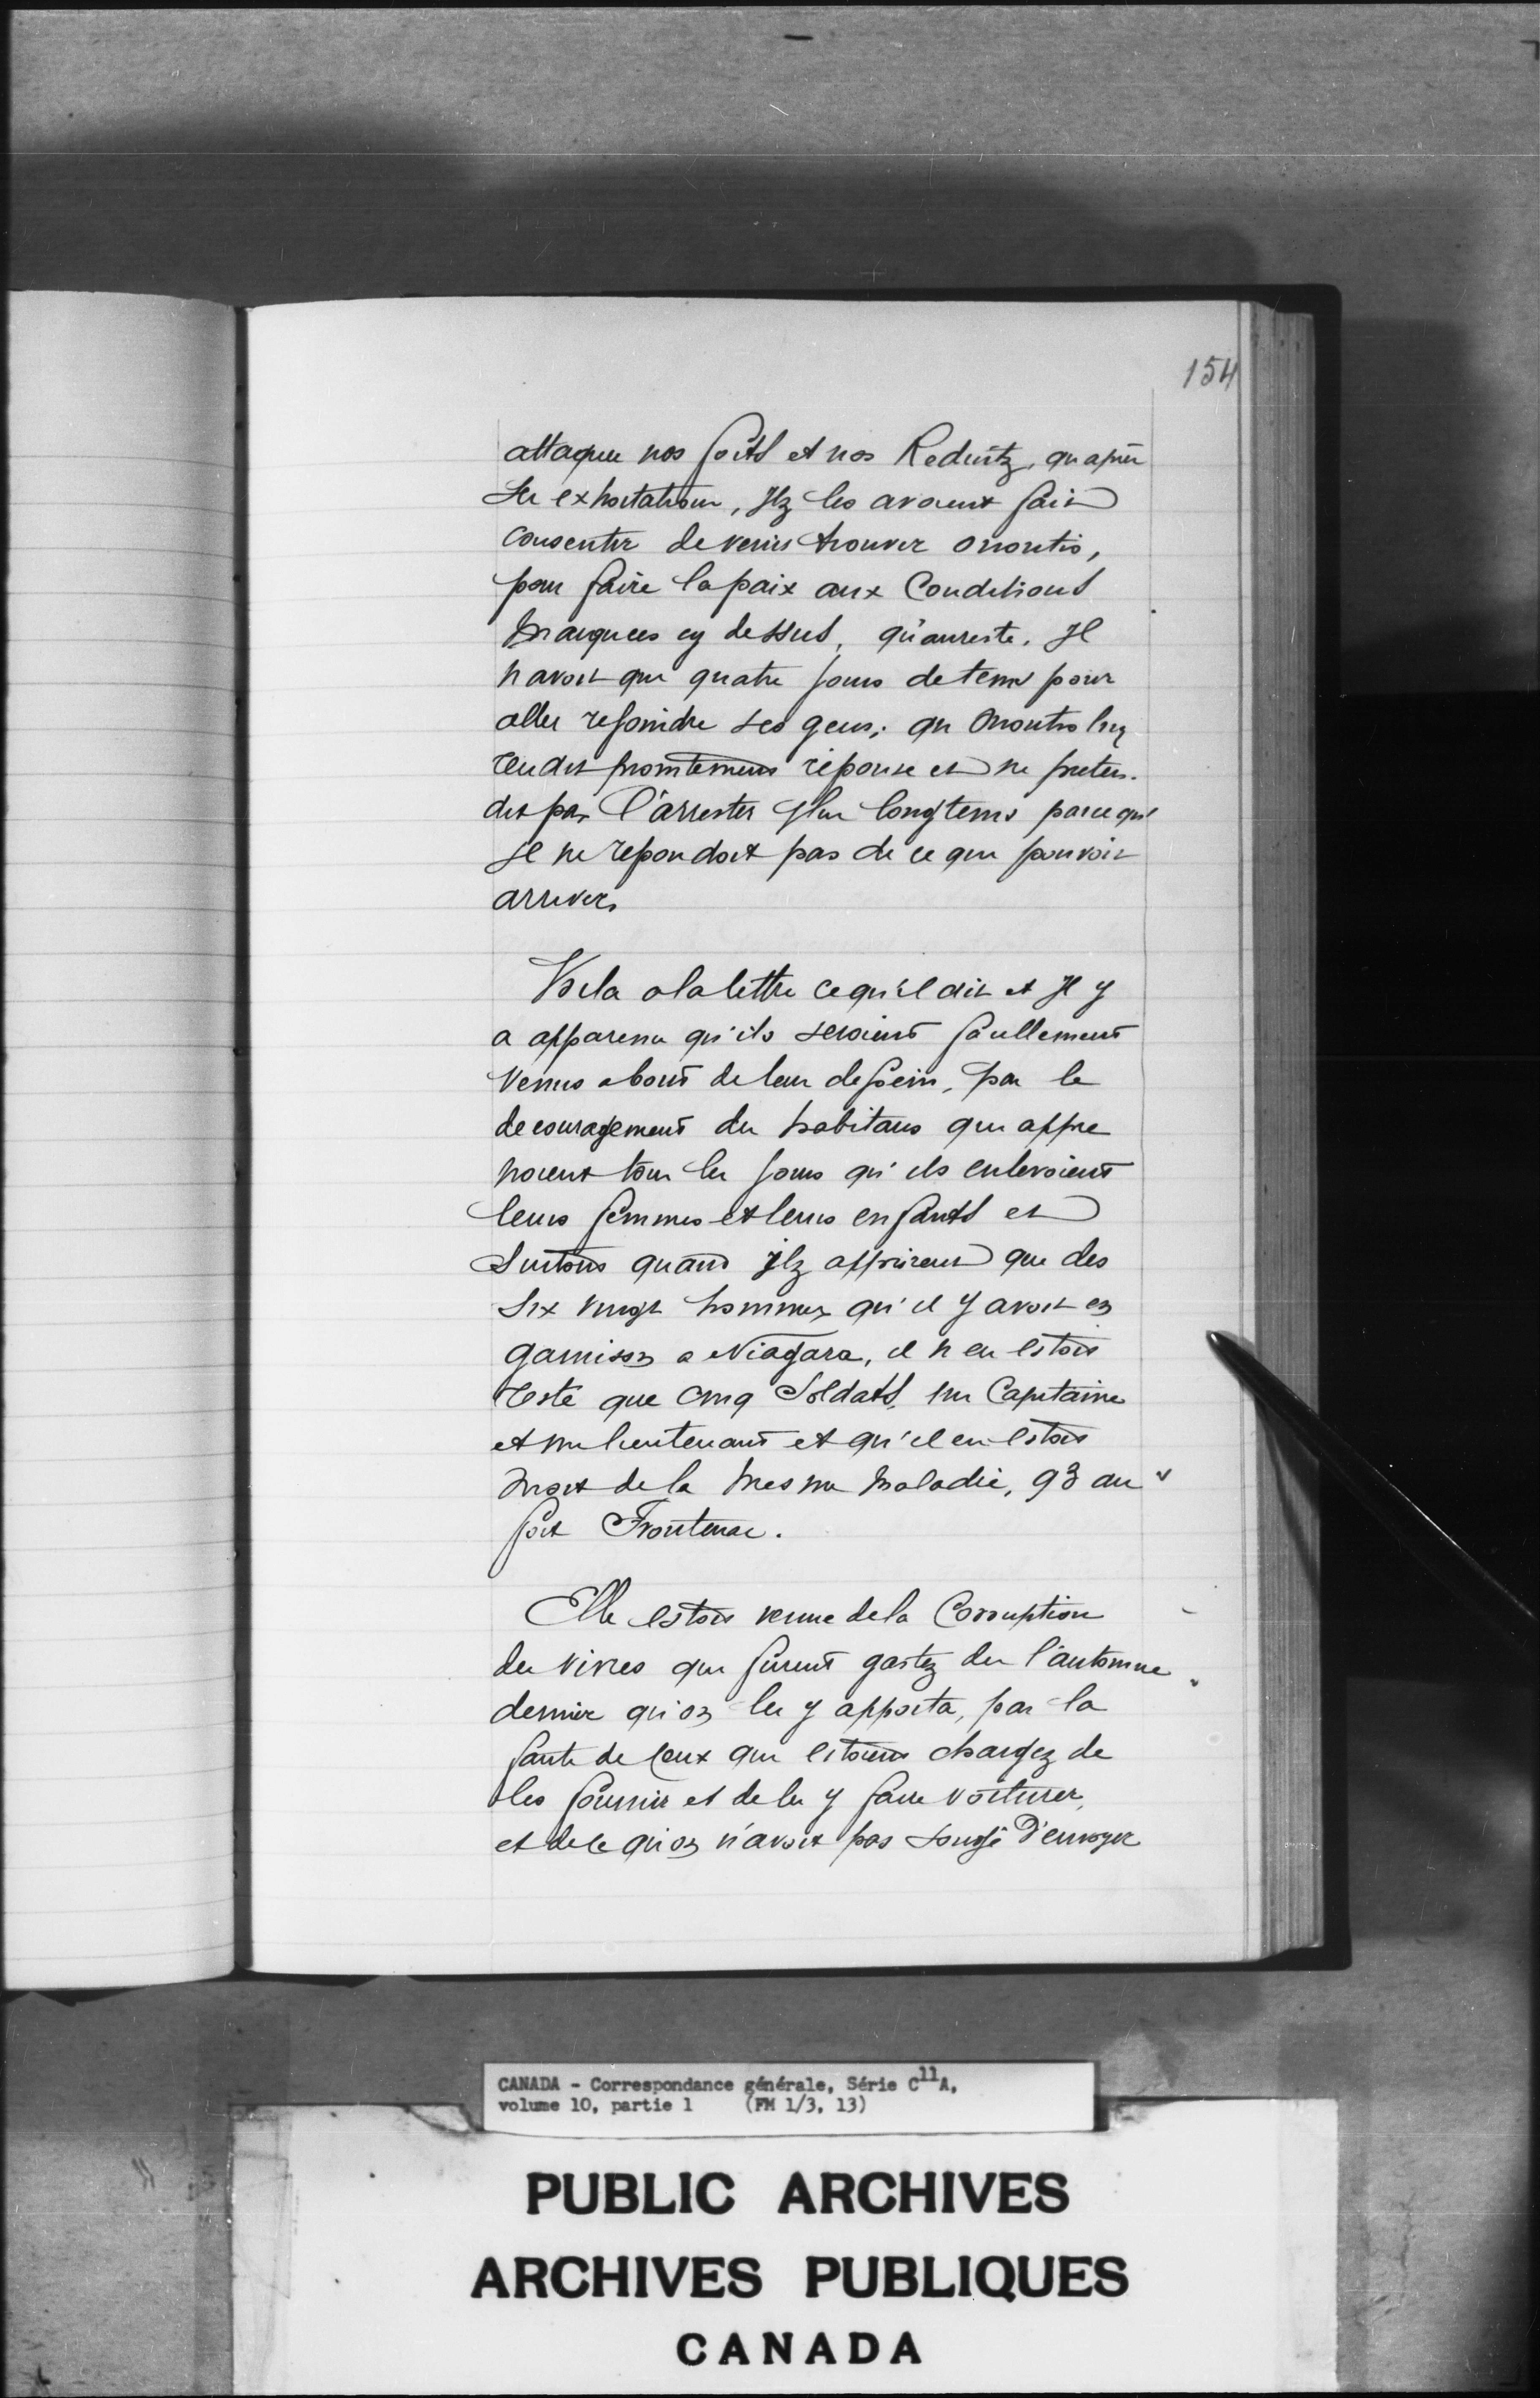 154
attaquer nos forts et nos Reduitz, qu'apres
ses exhortations, Ilz les avoient fait
consentir de venir trouver onontio,
pour faire la paix aux Conditions
marquees cy dessus, qu'aureste, Il
n avoit que quatre jours de tems pour
aller rejoindre ses gens; qu Onontio luy
rendit promtement réponse et ne preten-
dit pas l'arrester plus longtems parce qu'
Il ne repondoit pas de ce qui pouvoit
arriver.
Voila a la lettre ce qu'il dit et Il y
a apparence qu'ils seroient facillement
venus a bout de leur dessein, par le
decouragement des habitans qui appre
noient tous les jours qu'ils enlevoient
leurs femmes et leurs enfants et
surtout quand Ilz apprirent que des
six vingt hommes qu'il y avoit en
garnison a Niagara, il n en estoit
resté que cinq Soldats, un Capitaine
et un lieutenant et qu'il en estoit
mort de la mesme maladie, 93 au
fort Frontenac.
Elle estoit venue de la Corruption
des vivres qui furent gastez des l'automne
dernier qu'on les y apporta, par la
faute de Ceux qui estoient chargez de
les fournir et de les y faire voiturer,
et de ce qu'on n'avoit pas songé d'envoyer
CANADA - Correspondance générale, Série C11A,
volume 10, partie 1 (FM 1/3, 13)
PUBLIC ARCHIVES
ARCHIVES PUBLIQUES
CANADA